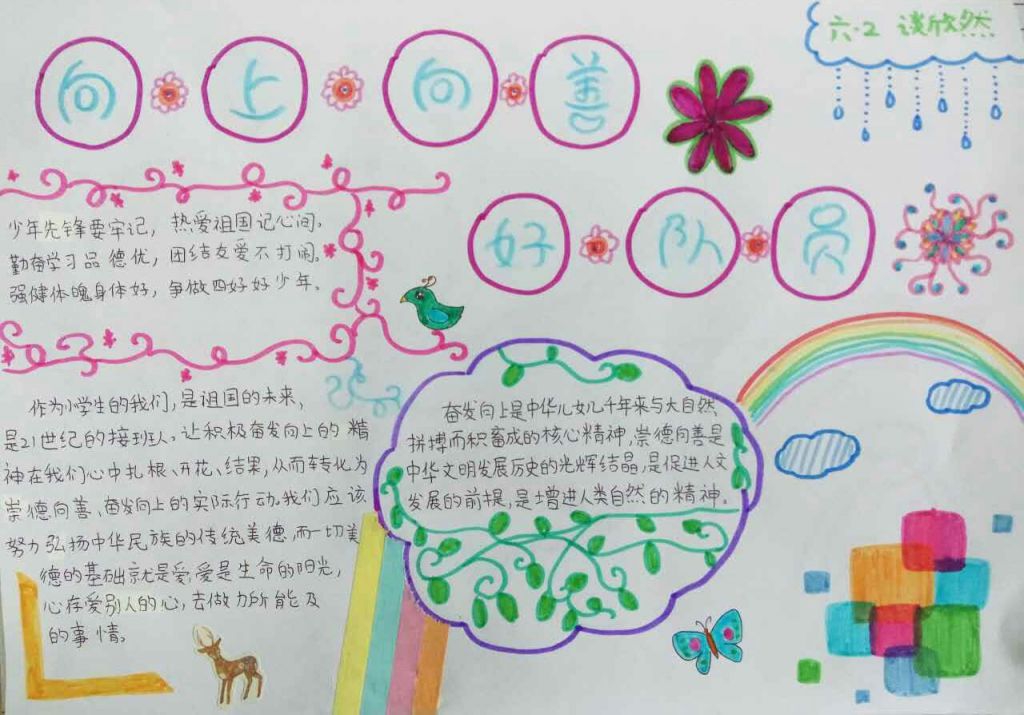 向上向善
六.2 谈欣然
好队员
少年先锋要牢记，热爱祖国记心间。
勤奋学习品德优，团结友爱不打闹。
强健体魄身体好，争做四好好少年。
作为小学生的我们，是祖国的未来，
是21世纪的接班人。让积极奋发向上的精
神在我们心中扎根、开花、结果，从而转化为
崇德向善、奋发向上的实际行动。我们应该
努力弘扬中华民族的传统美德，而一切美
德的基础就是爱，爱是生命的阳光，
心存爱别人的心，去做力所能及
的事情。
奋发向上是中华儿女几千年来与大自然
拼搏而积畜成的核心精神，崇德向善是
中华文明发展历史的光辉结晶，是促进人文
发展的前提，是增进人类自然的精神。